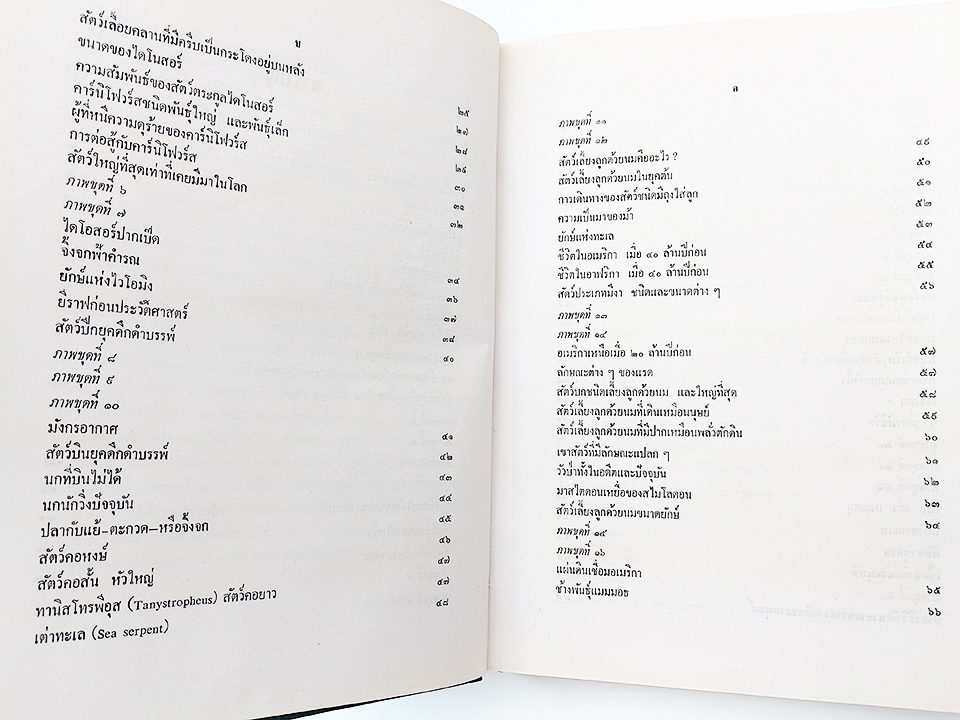 ข
สัตว์เลื้อยคลานที่มีครีบเป็นกระโดงอยู่บนหลัง ๒๕
ขนาดของไดโนสอร์ ๒๗
ความสัมพันธ์ของสัตว์ตระกูลไดโนสอร์ ๒๘
คาร์นิโฟวร์สชนิดพันธุ์ใหญ่ และพันธุ์เล็ก ๒๙
ผู้ที่หนีความดุร้ายของคาร์นิโฟวร์ส ๓๐
การต่อสู้กับคาร์นิโฟวร์ส ๓๑
สัตว์ใหญ่ที่สุดเท่าที่เคยมีมาในโลก ๓๒
ภาพชุดที่ ๖
ภาพชุดที่ ๗
ไดโอสอร์ปากเป็ด ๓๔
จิ้งจกฟ้าคำรณ ๓๖
ยักษ์แห่งไวโอมิง ๓๗
ยีราฟก่อนประวัติศาสตร์ ๓๘
สัตว์ปีกยุคดึกดำบรรพ์ ๔๐
ภาพชุดที่ ๘
ภาพชุดที่ ๙
ภาพชุดที่ ๑๐
มังกรอากาศ ๔๑
สัตว์บินยุคดึกดำบรรพ์ ๔๒
นกที่บินไม่ได้ ๔๓
นกนักวิ่งปัจจุบัน ๔๔
ปลากับแย้-ตะกวด—หรือจิ้งจก ๔๕
สัตว์คอหงษ์ ๔๖
สัตว์คอสั้น หัวใหญ่ ๔๗
ทานิสโทรพีอุส (Tanystropheus) สัตว์คอยาว ๔๗
เต่าทะเล (Sea serpent) ๔๘
ค
ภาพชุดที่ ๑๑
ภาพชุดที่ ๑๒
สัตว์เลี้ยงลูกด้วยนมคืออะไร ? ๔๙
สัตว์เลี้ยงลูกด้วยนมในยุคต้น ๕๐
การเดินทางของสัตว์ชนิดมีถุงใส่ลูก ๕๑
ความเป็นมาของม้า ๕๒
ยักษ์แห่งทะเล ๕๓
ชีวิตในอเมริกา เมื่อ ๔๐ ล้านปีก่อน ๕๔
ชีวิตในอาฟริกา เมื่อ ๔๐ ล้านปีก่อน ๕๕
สัตว์ประเภทมีงา ชนิดและขนาดต่าง ๆ ๕๖
ภาพชุดที่ ๑๓
ภาพชุดที่ ๑๔
อเมริกาเหนือเมื่อ ๒๐ ล้านปีก่อน ๕๗
ลักษณะต่าง ๆ ของแรด ๕๗
สัตว์บกชนิดเลี้ยงลูกด้วยนม และใหญ่ที่สุด ๕๘
สัตว์เลี้ยงลูกด้วยนมที่เดินเหมือนมนุษย์ ๕๙
สัตว์เลี้ยงลูกด้วยนมที่มีปากเหมือนพลั่วตักดิน ๖๐
เขาสัตว์ที่มีลักษณะแปลก ๆ ๖๑
วัวป่าทั้งในอดีตและปัจจุบัน ๖๒
มาสโตดอนเหยื่อของสไมโลดอน ๖๓
สัตว์เลี้ยงลูกด้วยนมขนาดยักษ์ ๖๔
ภาพชุดที่ ๑๕
ภาพชุดที่ ๑๖
แผ่นดินเชื่อมอเมริกา ๖๕
ช้างพันธุ์แมมมอธ ๖๖